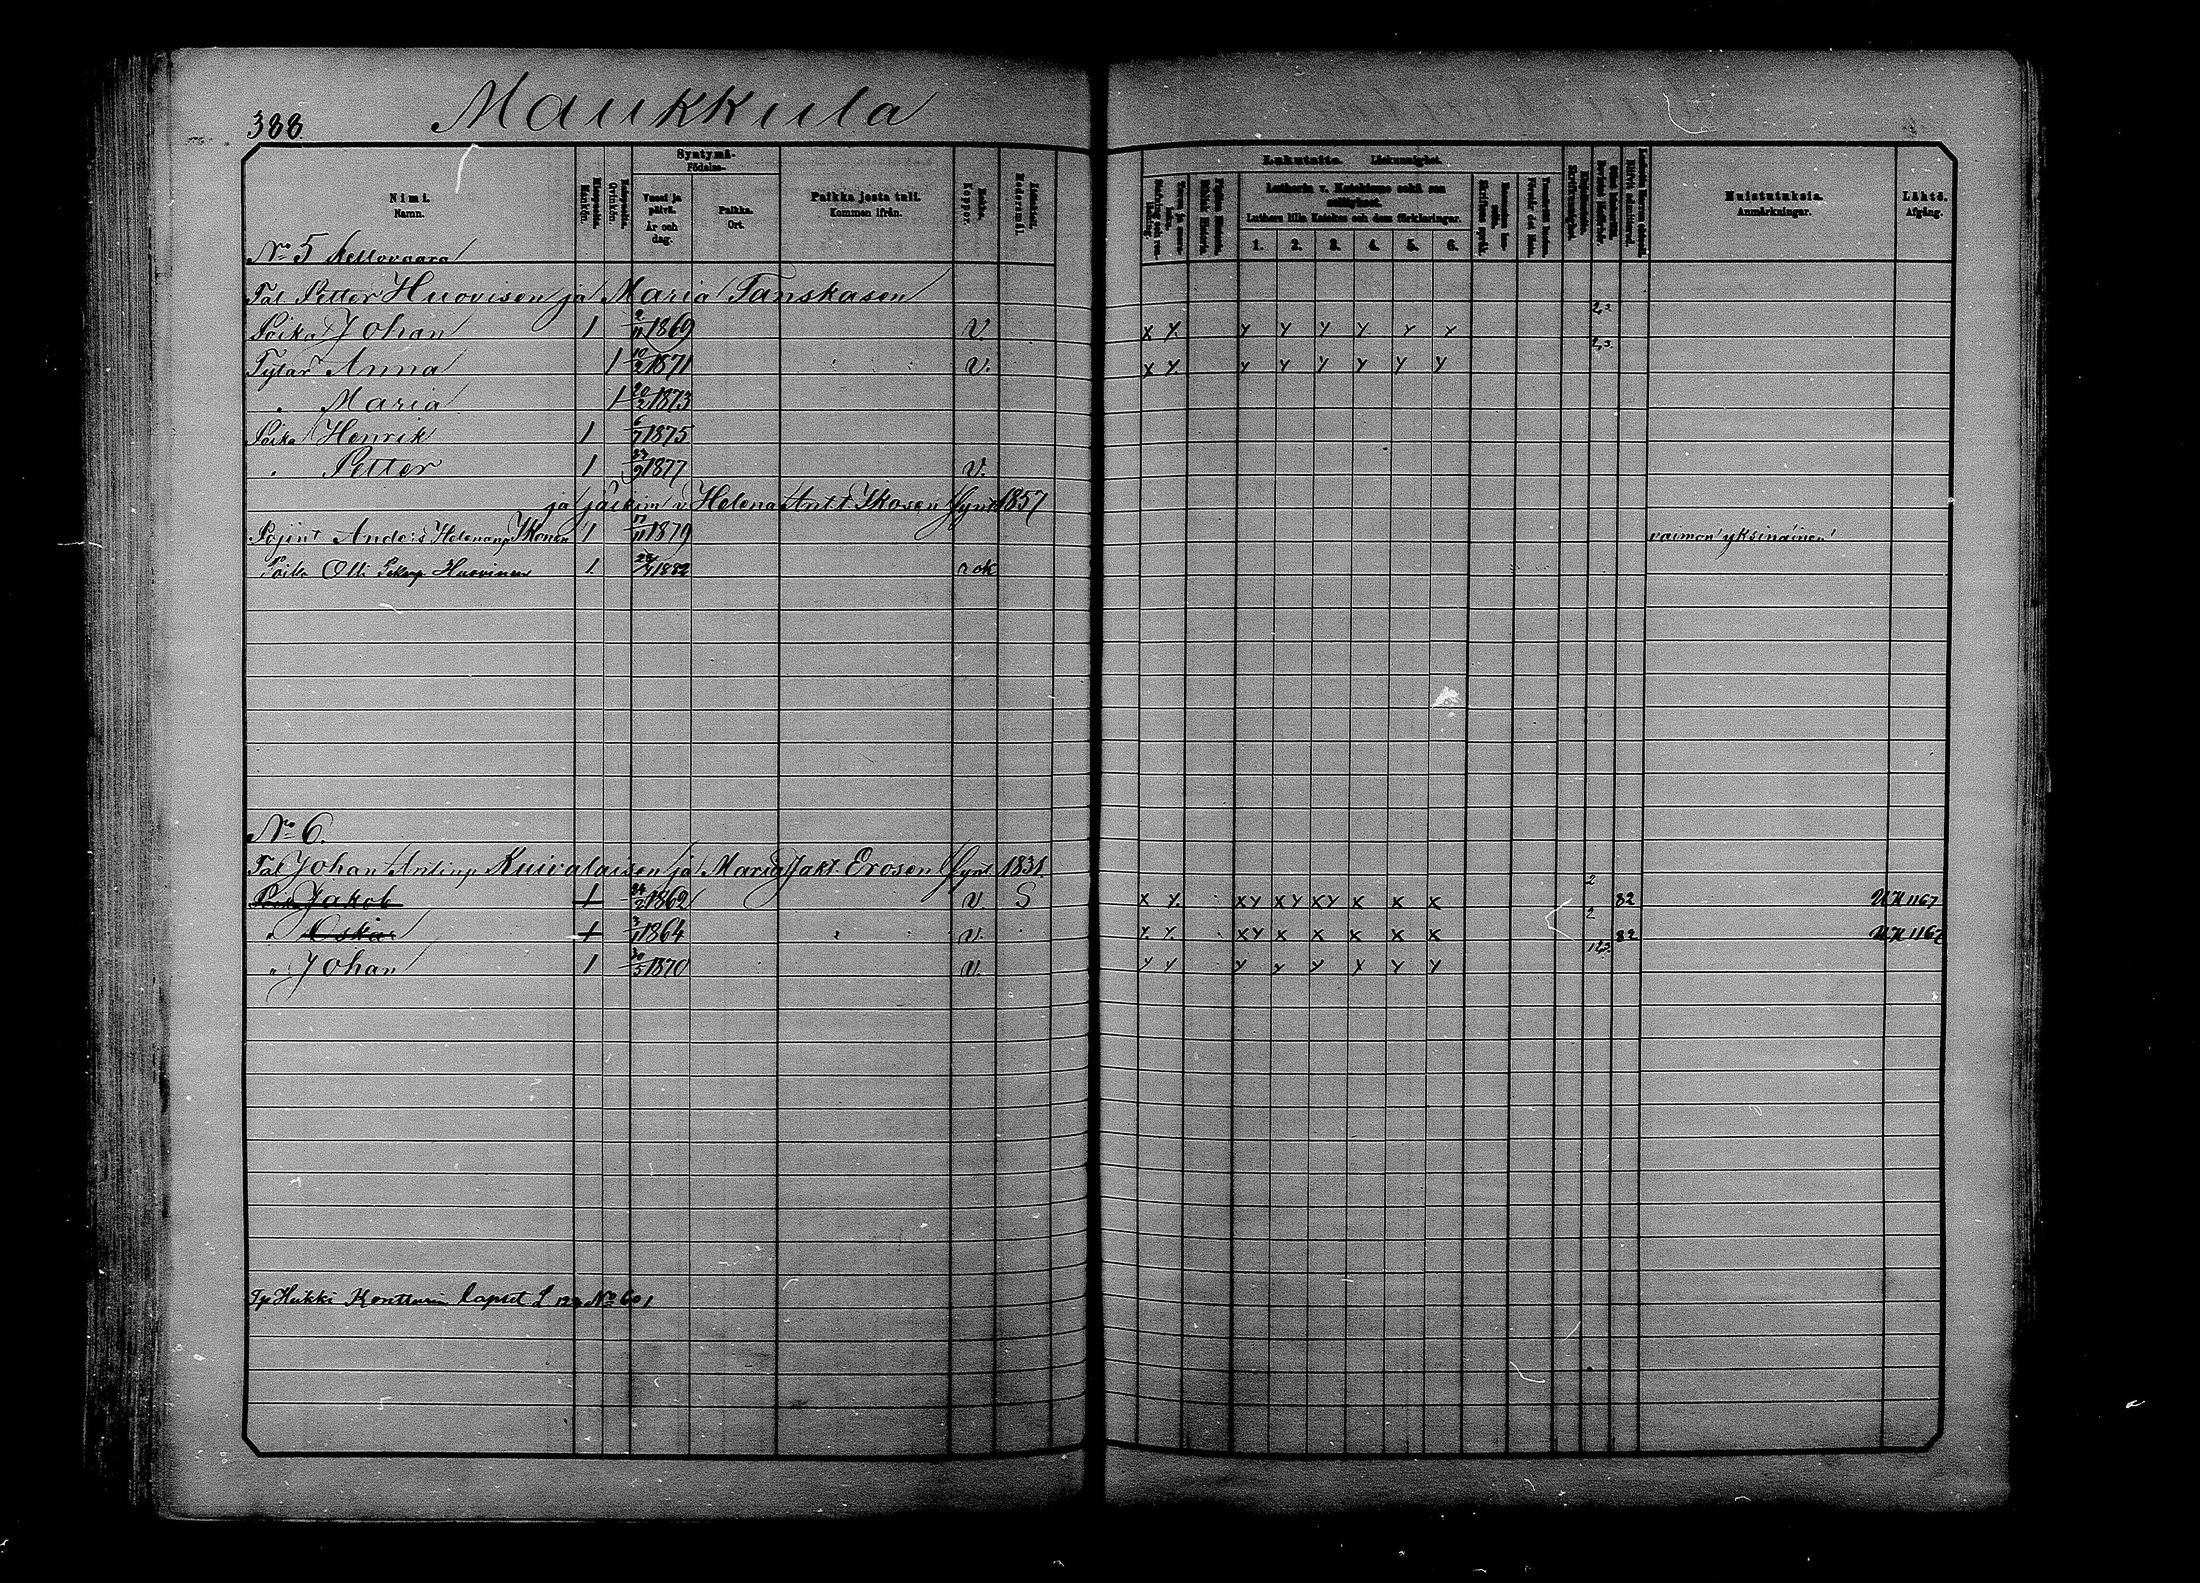 388
Maukkula
Nimi.
Namn.
Miespuolia.
Mankön.
Naispuolia.
Qvinkön.
Syntymä-
Födelse-
Vuosi ja päivä.
År och dag.
Paikka.
Ort.
Paikka josta tuli.
Kommen ifrån.
Rokko.
Koppor.
Äidinkieli.
Modersmål.
Lukutaito. Läskunnighet.
Lutherin v. Katekismo sekä sen selitykset.
Luthers lilla Katekes och dess förklaringar.
1. 2. 3. 4. 5. 6.
Muistutuksia.
Anmärkningar.
Lähtö.
Afgång.
No 5 Kellovaara
Tal Petter Huovisen ja Maria Tanskasen
Poika Johan 1 2/11 1869 V. x y. y y y y y y 2,3.
Tytär Anna 1 10/2 1871 V. x y. y y y y y y 2,3.
" Maria 1 20/2 1873
Poika Henrik 1 6/7 1875
" Petter 1 23/9 1877 V.
ja jälkim v. Helena Antt Ikosen Synt 1857
Pojint Anders Helenanp Ikonen 1 17/11 1879 vaimon yksinäinen
Poika Olli Pekanp Huovinen 1 1882 rok
No 6.
Tal Johan Antinp Kuivalaisen ja Maria Jakt Erosen Synt 1831.
Poika Jakob 1 24/2 1862 V. S x y. xy xy xy x x x 2 82 UK 1167
" Oskar 1 3/1 1864 V. y. y. xy x x x x x 2 82 UK 1167
" Johan 1 30/5 1870 V. y y y y y x y y 1,2,3.
Tp Heikki Kontturin lapset L 123 No 60 1